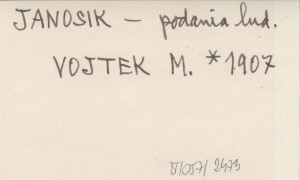 JANOSIK – podania lud.
VOJTEK M. *1907